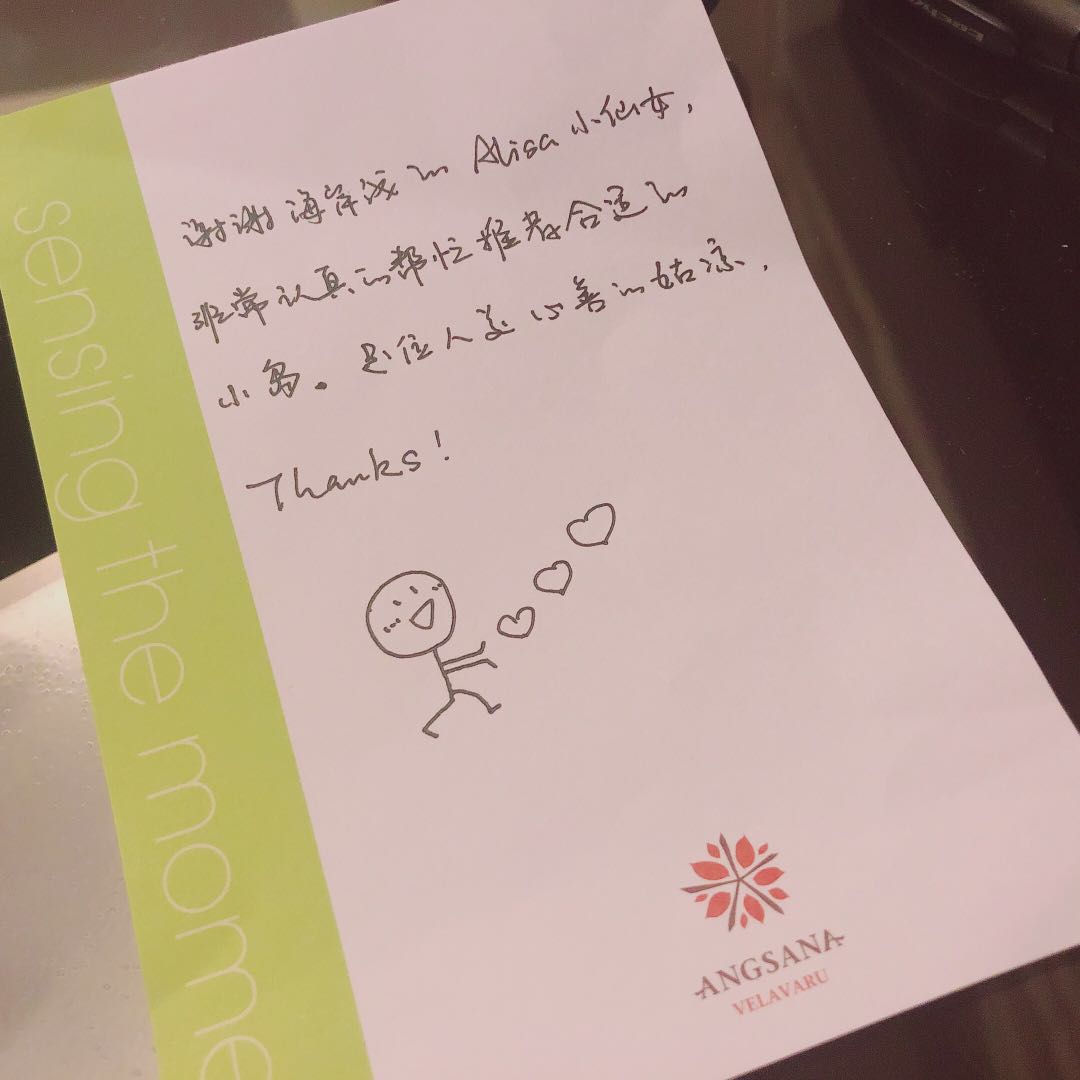 谢谢海岸线的 Alisa 小仙女,
非常认真的帮忙推荐合适的
小岛。是位人美心善的姑凉,
Thanks!
sensing the mome
ANGSANA
VELAVARU